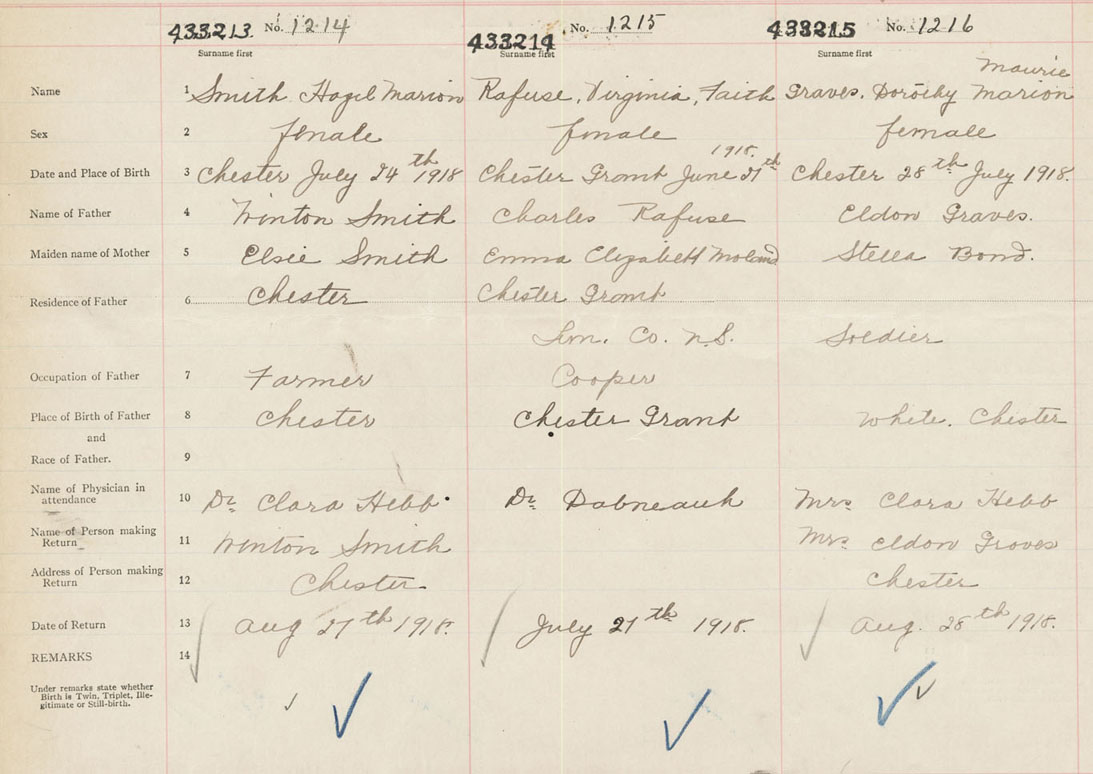 433213 No. 1214 433214 No. 1215 433215 No. 1216
Surname first Surname first Surname first
Maurie
Name 1 Smith Hazel Marion Rafuse, Virginia, Faith Graves. Dorothy Marion
Sex 2 female female female
1918.
Date and Place of Birth 3 Chester July 24th 1918 Chester Grant June 27th Chester 28th July 1918.
Name of Father 4 Winton Smith Charles Rafuse Eldon Graves.
Maiden name of Mother 5 Elsie Smith Emma Elizabeth Stella Bond.
Residence of Father 6 Chester Chester Grant
Lun. Co. N.S. Soldier
Occupation of Father 7 Farmer Cooper
Place of Birth of Father 8 Chester Chester Grant White. Chester
and
Race of Father. 9
Name of Physician in
attendance 10 Dr. Clara Hebb. Dr. Mrs. Clara Hebb
Name of Person making
Return 11 Winton Smith Mrs. Eldon Graves
Address of Person making
Return 12 Chester Chester
Date of Return 13 Aug 27th 1918. July 27th 1918. Aug. 28th 1918.
REMARKS 14
Under remarks state whether
Birth is Twin, Triplet, Ille-
gitimate or Still-birth.